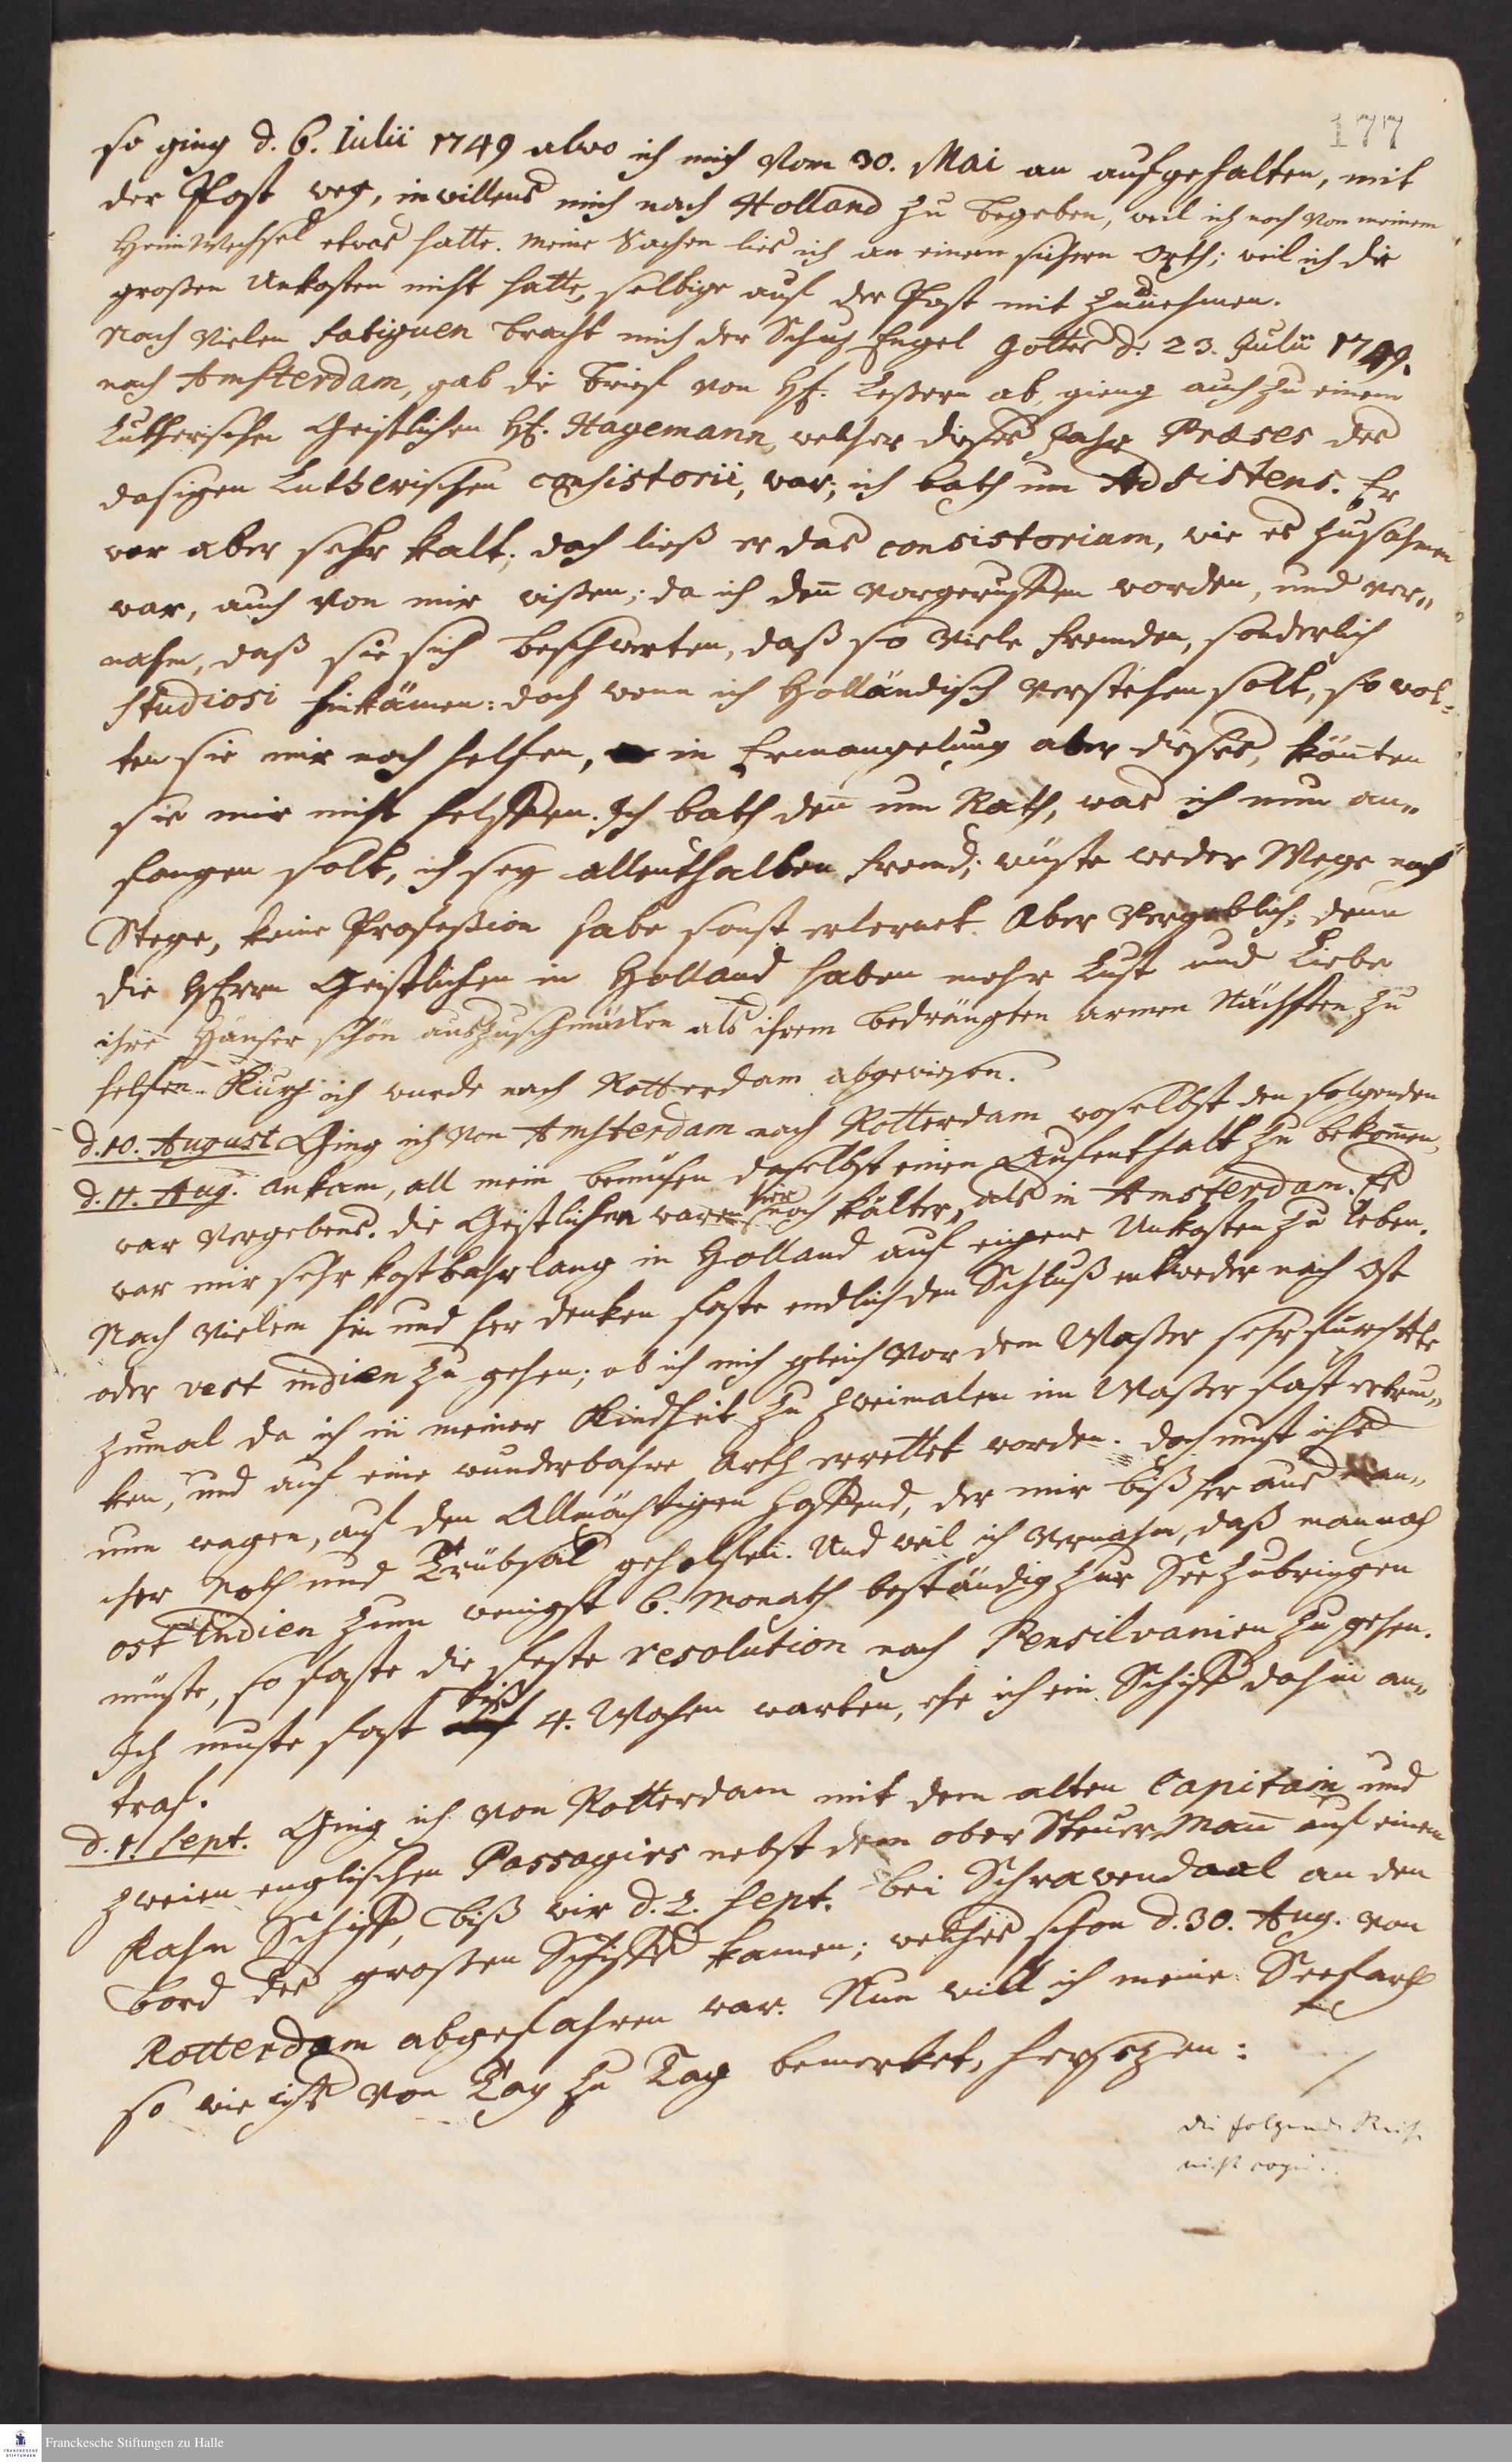 177
so ging d. 6. Iulii 1749 alwo ich mich vom 30. Mai an aufgehalten, mit
der Post weg, inwillens mich nach Holland zu begeben, weil ich noch von meinem
Wechsel etwas hatte. Meine Sachen lies ich an einem sichern Orth; weil ich die
großen Unkosten nicht hatte, selbige auf der Post mit zunehmen.
Nach vielen fatiguen bracht mich der Schuz Engel Gottes d. 23. Julii 1749.
nach Amsterdam, gab die Brief von H. Leßern ab, gieng auch zu einem
Lutherischen Geistlichen H. Hagemann, welcher dieses Jahr Præses des
dasigen Lutherischen consistorii, war; ich bath um Adsistens. Er
war aber sehr kalt, doch ließ er das consistorium, wie es zusahmen
war, auch von mir wißen; da ich deñ vorgeruffen worden, und ver„
nahm, daß sie sich beschwerten, daß so viele Fremden, sonderlich
studiosi hinkämen: doch wenn ich Holländisch verstehen solt, so wol„
ten sie mir noch helfen, in Ermangelung aber dieses, köñten
sie mir nicht helffen. Ich bath deñ um Rath, was ich nun an„
fangen solt, ich sey allenthalben fremd; wüste weder Wege noch
Stege, keine Profeßion habe sonst erlernet. Aber vergeblich; denn
die Herrn Geistlichen in Holland haben mehr Lust und Liebe
ihre Häuser schön auszuschmücken als ihrem bedrängten armen Nächsten zu
helfen. Kurz ich wurde nach Rotterdam abgewiesen.
d. 10. August Ging ich von Amsterdam nach Rotterdam woselbst den folgenden
d. 11. Aug. ankam, all mein bemühen daselbst einen Aufenthalt zu bekom̃en,
war vergebens. die Geistlichen waren hier noch kälter, als in Amsterdam. Es
war mir sehr kostbahr lang in Holland auf eigene Unkosten zu leben.
Nach vielem hin und her denken faste endlich den Schluß entweder nach Ost
oder vest indien zu gehen; ob ich mich gleich vor dem Waßer sehr furchtte
zumal da ich in meiner Kindheit zu zweimalen im Waßer fast ertrun„
ken, und auf eine wunderbahre Arth errettet worden. Doch must ichs
nun wagen, auf den Allmächtigen hoffend, der mir bißher aus man„
cher Noth und Trübsal geholfen. Und weil ich vernahm, daß man nach
ost Indien zum wenigst 6. Monath beständig zur See zubringen
müste, so faste die feste resolution nach Pensilvanien zu gehen.
Ich muste fast biß 4. Wochen warten, ehe ich ein Schiff dahin an„
traf.
d. 1. Sept. Ging ich von Rotterdam mit dem alten Capitain und
zweien englischen Passagirs nebst dem ober Steuer Mañ auf einem
Kahn Schiff, biß wir d. 2. Sept. bei Schravendaal an den
Bord des großen Schiffs kamen; welches schon d. 30. Aug. von
Rotterdam abgefahren war. Nun will ich meine Seefarth
so wie ichs von Tag zu Tag bemerket, hersezen:
die folgende Reise
nicht
Franckesche Stiftungen zu Halle